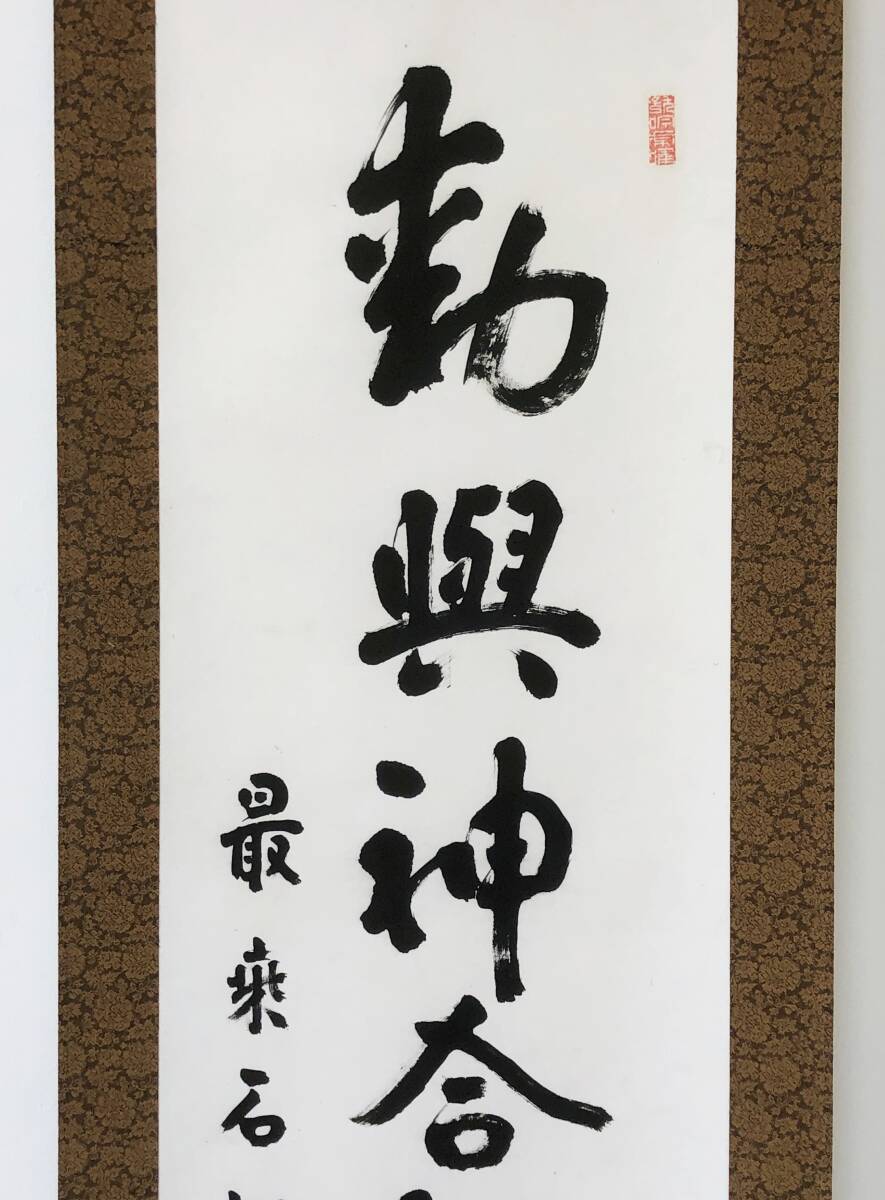 動與神合
最乗石